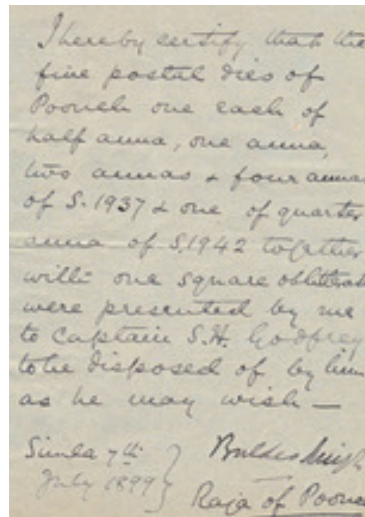 I hereby certify that the
five postal dies of
Poonch one each of
half anna, one anna,
two annas & four annas
of S. 1937 & one of quarter
anna of S. 1942 together
with one square obliterat
were presented by me
to Captain S.H. Godfrey
to be disposed of by him
as he may wish —
Simla 7th
July 1899
Buldeo Singh
Raja of Poonch